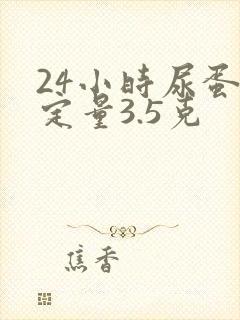 24小时尿蛋
定量3.5克
焦香